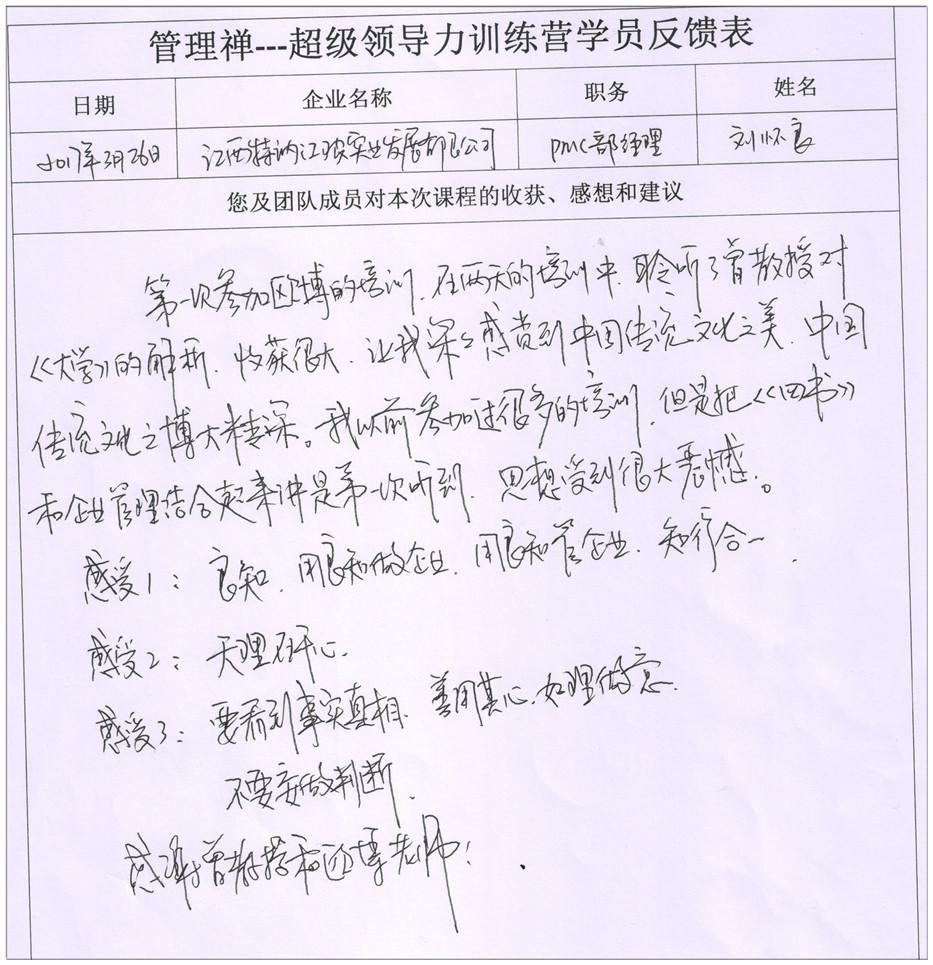 管理禅---超级领导力训练营学员反馈表
日期 企业名称 职务 姓名
2017年3月26日 江西特讷江玻实业发展有限公司 PMC部经理 刘怀良
您及团队成员对本次课程的收获、感想和建议
第一次参加欧博的培训，在两天的培训中，聆听了曾教授对
《大学》的解析，收获很大，让我深深感觉到中国传统文化之美，中国
传统文化之博大精深。我以前参加过很多的培训，但是把《四书》
和企业管理结合起来讲是第一次听到，思想受到很大震憾。
感受1：良知，用良知做企业，用良知管企业，知行合一。
感受2：天理在心。
感受3：要看到事实真相，善用其心，如理做意，
不要妄做判断。
感谢曾教授和欧博老师！